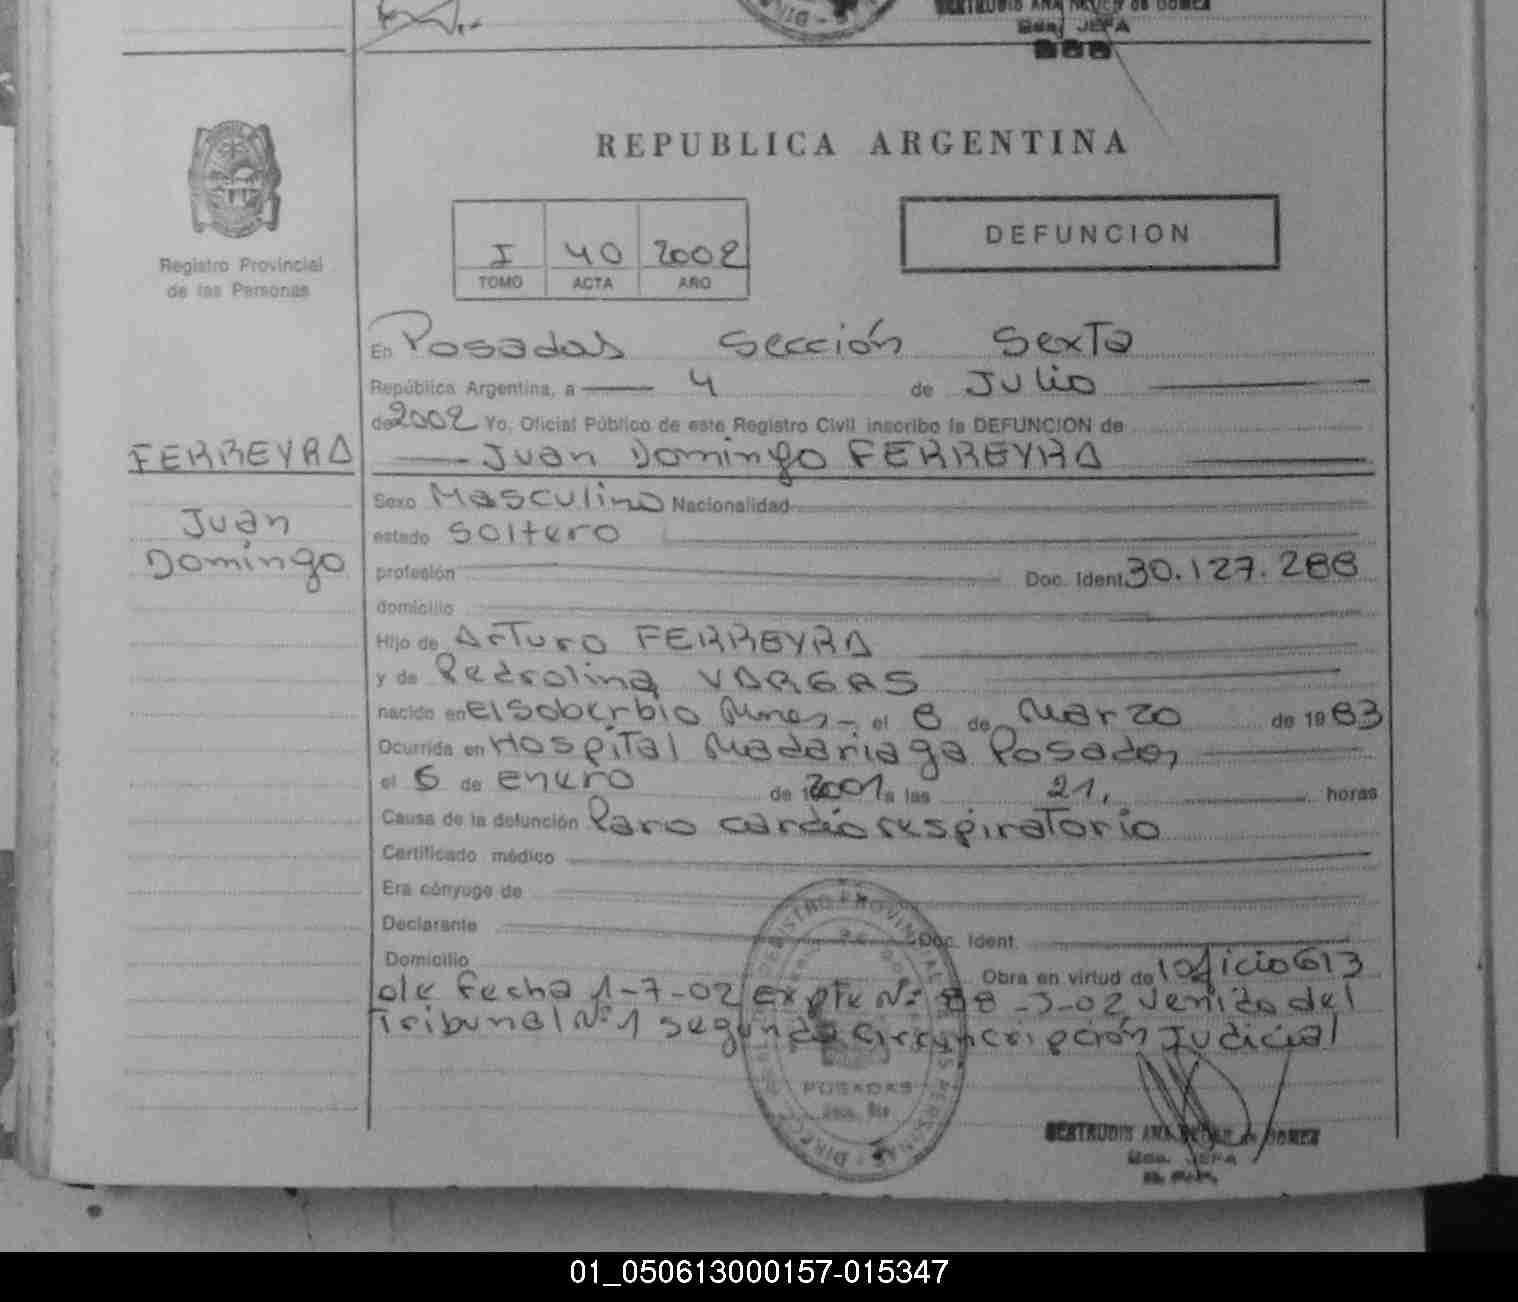 REPUBLICA ARGENTINA
DEFUNCION
I 40 2002
TOMO ACTA AÑO
Registro Provincial
de las Personas
En Posadas Sección Sexta
República Argentina, a 4 de Julio
de 2002 Yo, Oficial Público de este Registro Civil inscribo la DEFUNCION de
FERREYRA
Juan Domingo FERREYRA
Juan
Domingo
Sexo Masculino Nacionalidad
estado Soltero
profesión Doc. Ident. 30.127.288
domicilio
Hijo de Arturo FERREYRA
y de Pedrolina VARGAS
nacido en El Soberbio Mnes - el 8 de Marzo de 19 83
Ocurrida en Hospital Madariaga Posadas
el 6 de enero de 2001 a las 21, horas
Causa de la defunción Paro cardio respiratorio
Certificado médico
Era cónyuge de
Declarante Doc. Ident.
Domicilio Obra en virtud de oficio 613
de fecha 1-7-02 expte Nº venido del
Tribunal Nº 1 segunda circunscripción Judicial
POSADAS
GERTRUDIS ANA DE GOMEZ
JEFA
01_050613000157-015347